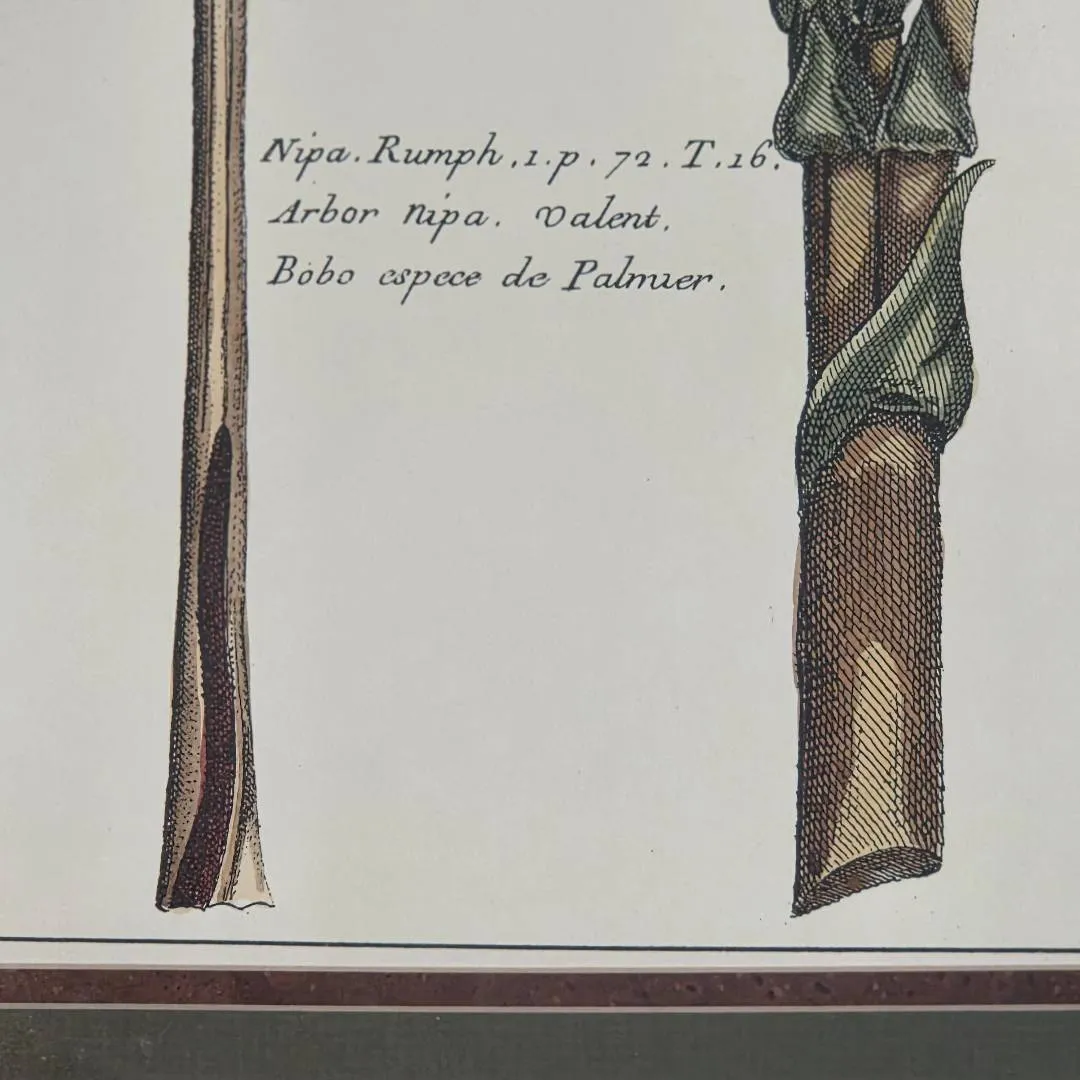 Nipa. Rumph. 1. p. 72. T. 16.
Arbor nipa. Valent.
Bobo espece de Palmier.